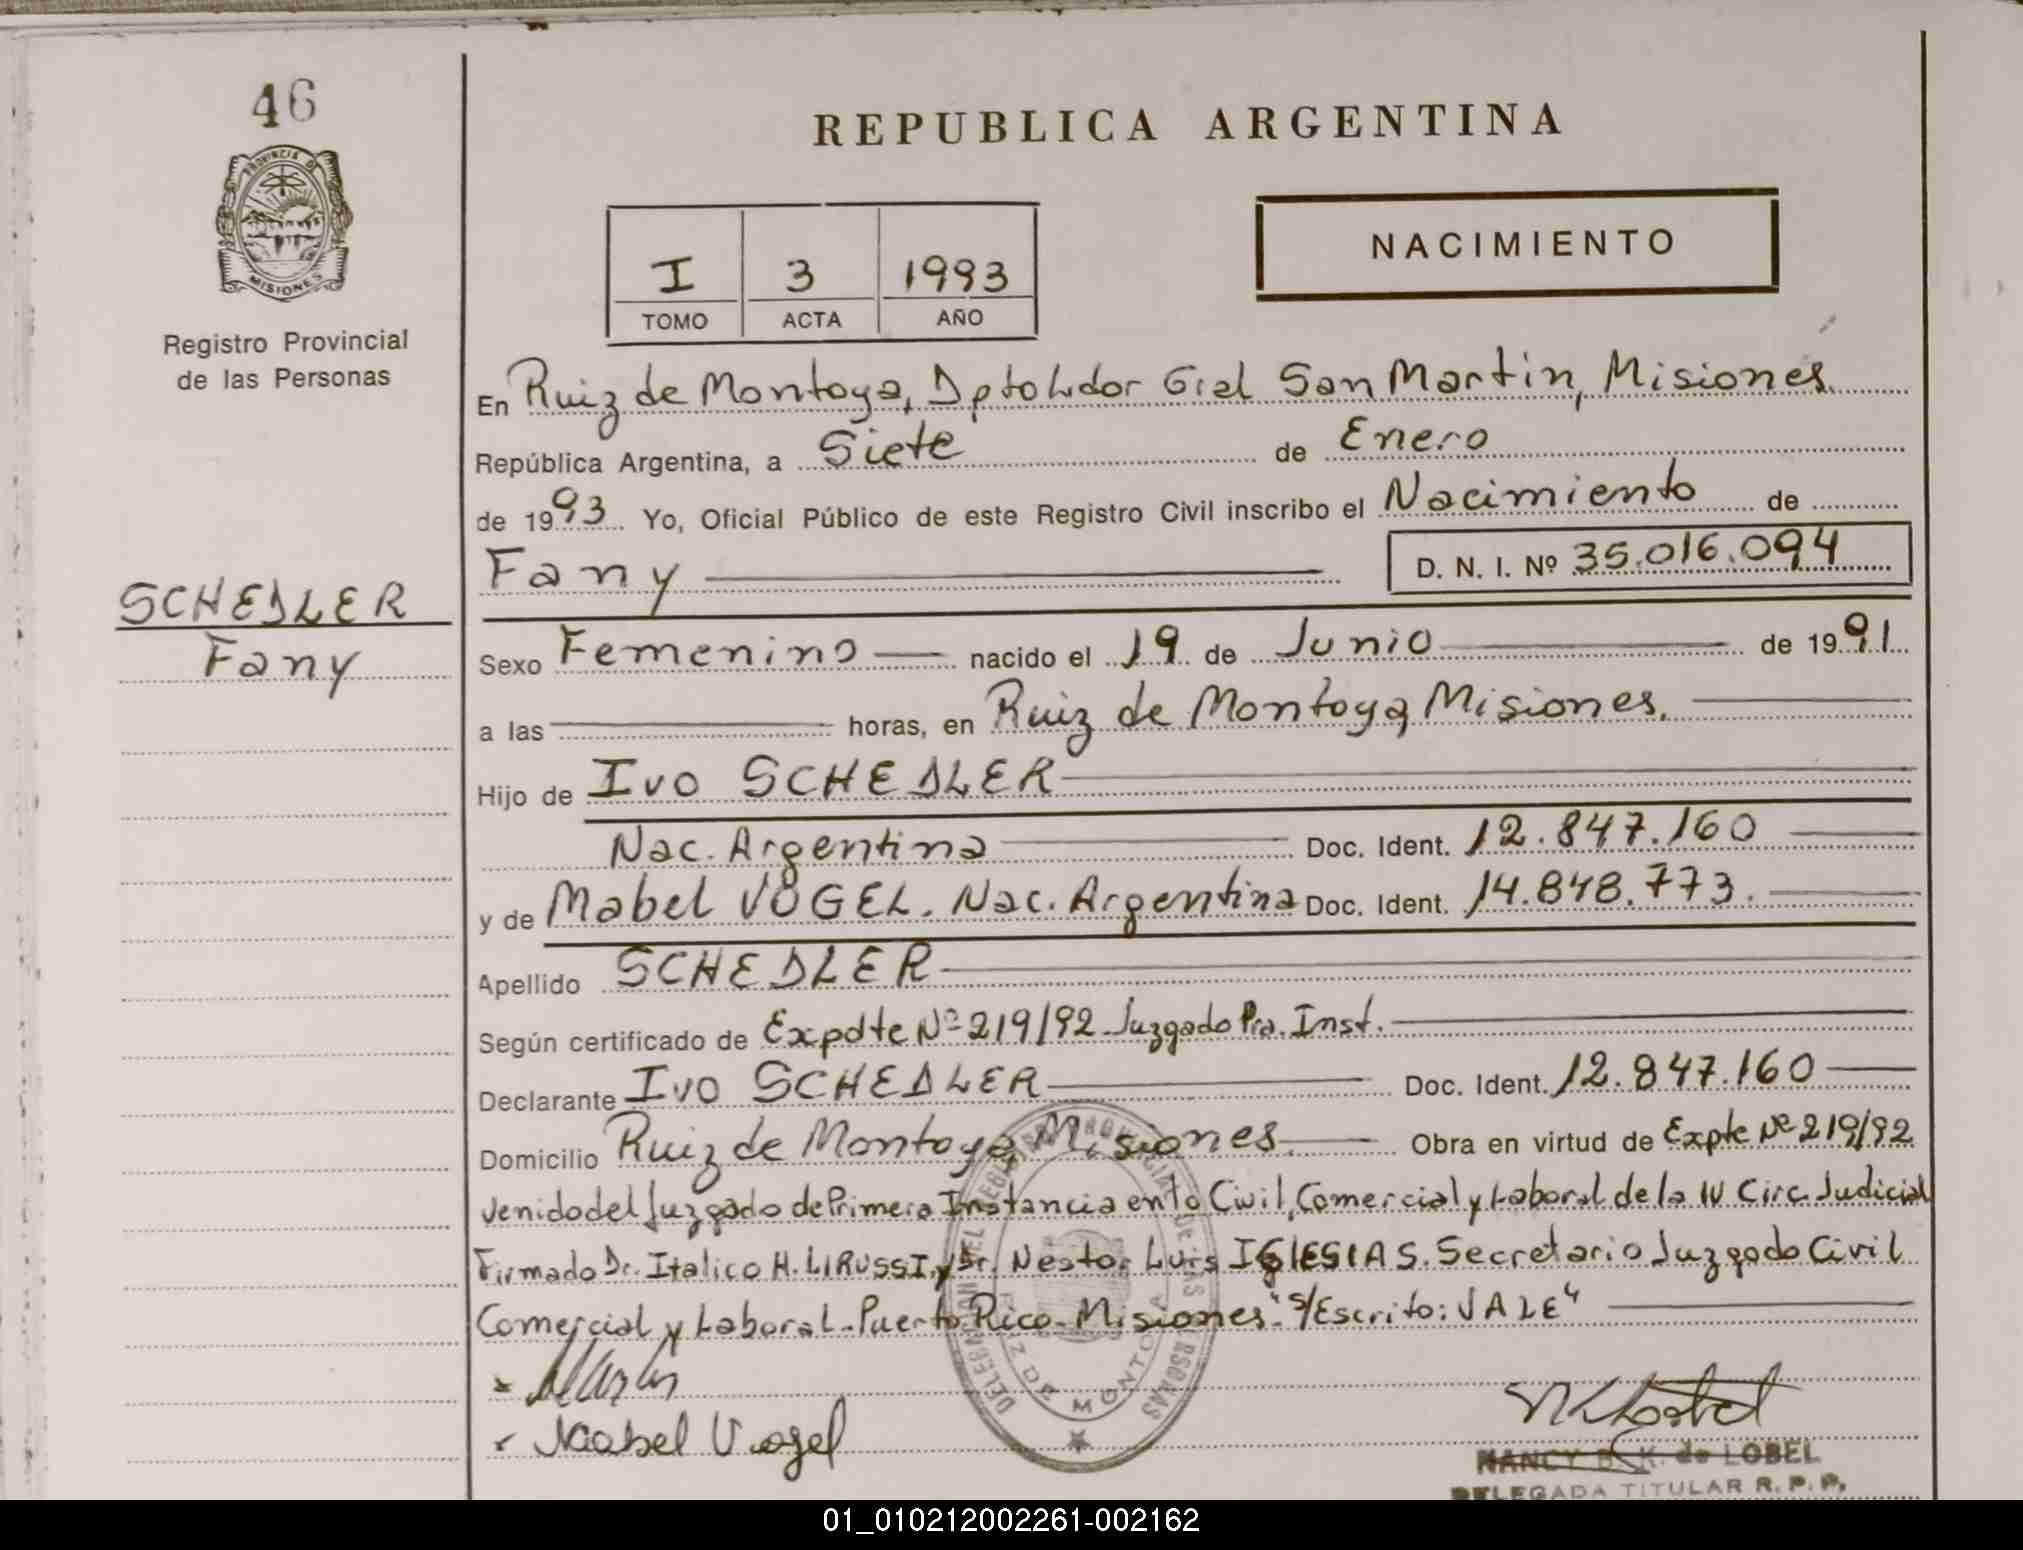 46
PROVINCIA DE
MISIONES
Registro Provincial
de las Personas
SCHEDLER
Fany
REPUBLICA ARGENTINA
I 3 1993
TOMO ACTA AÑO
NACIMIENTO
En Ruiz de Montoya, Dpto Ldor Gral San Martin, Misiones.
República Argentina, a Siete de Enero
de 1993 Yo, Oficial Público de este Registro Civil inscribo el Nacimiento de
Fany D. N. I. Nº 35.016.094
Sexo Femenino nacido el 19 de Junio de 1991
a las horas, en Ruiz de Montoya Misiones.
Hijo de Ivo SCHEDLER
Nac. Argentina Doc. Ident. 12.847.160
y de Mabel VOGEL. Nac. Argentina Doc. Ident. 14.848.773.
Apellido SCHEDLER
Según certificado de Expdte Nº 219/92 Juzgado Pra. Inst.
Declarante Ivo SCHEDLER Doc. Ident. 12.847.160
Domicilio Ruiz de Montoya Misiones. Obra en virtud de Expte Nº 219/92
venido del Juzgado de Primera Instancia en lo Civil, Comercial y Laboral de la IV Circ. Judicial
Firmado Dr. Italico H. LIRUSSI, y Dr. Nestor Luis IGLESIAS. Secretario Juzgado Civil
Comercial y Laboral - Puerto Rico - Misiones. "S/Escrito: VALE"
Mabel Vogel
NANCY B. K. de LOBEL
DELEGADA TITULAR R. P. P.
01_010212002261-002162